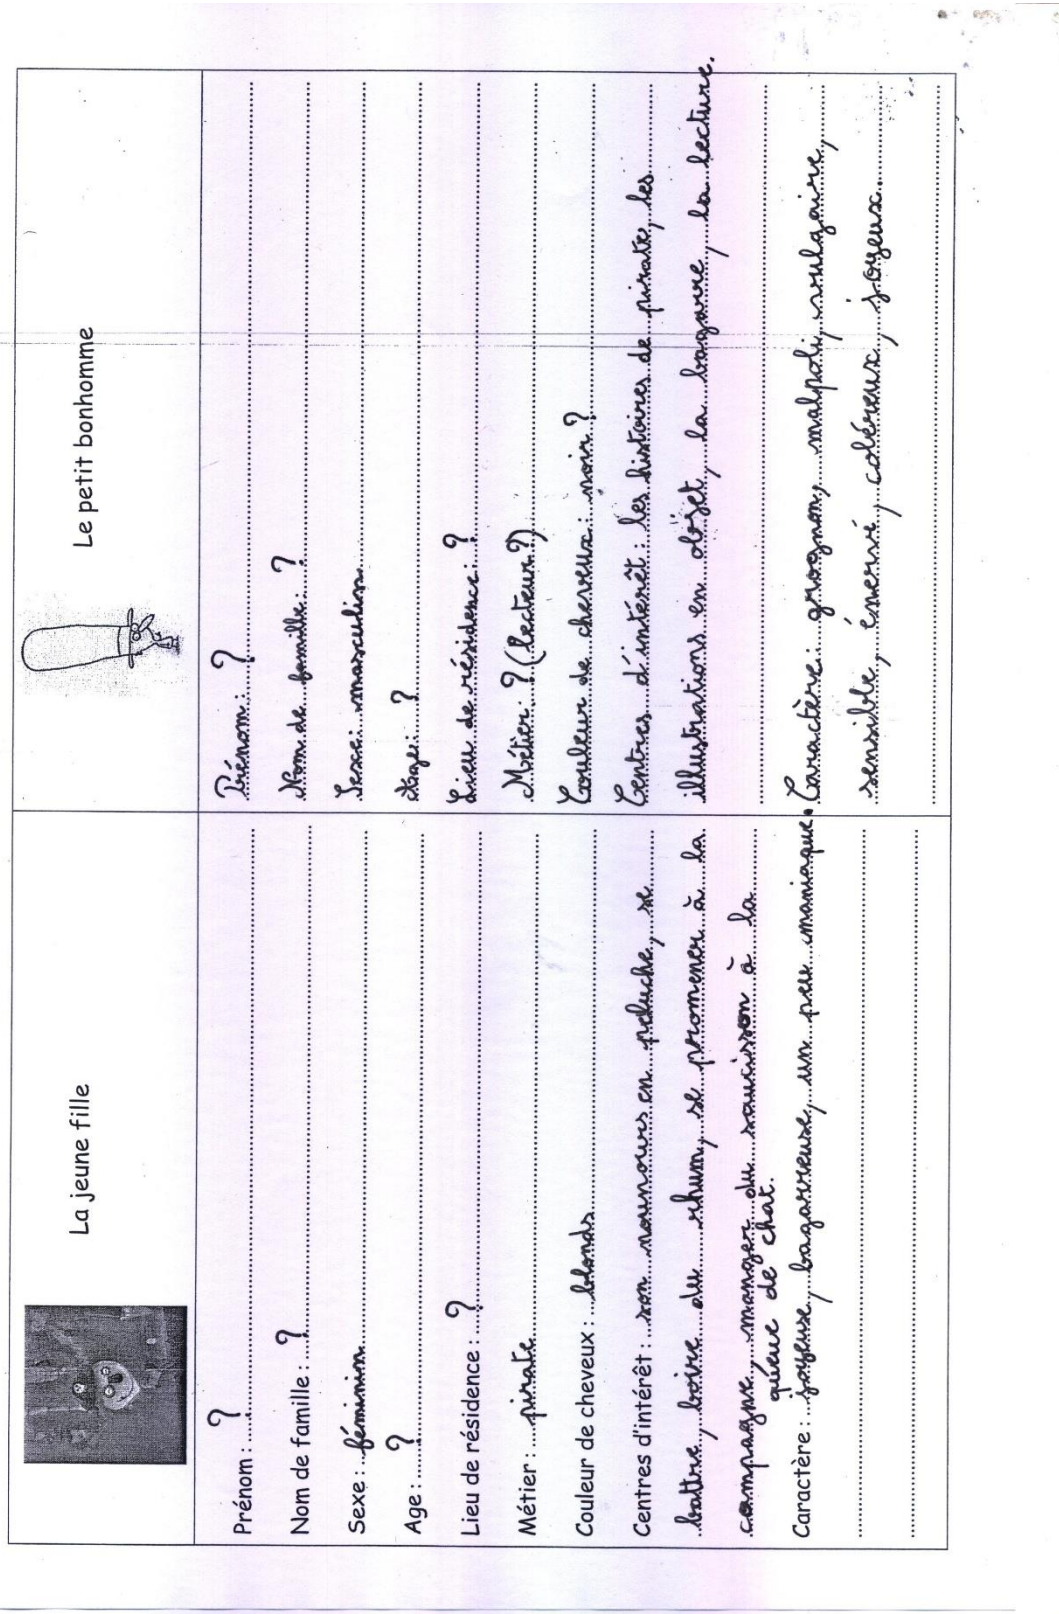 La jeune fille
Prénom : ?
Nom de famille : ?
Sexe : féminin
Age : ?
Lieu de résidence : ?
Métier : pirate
Couleur de cheveux : blonds
Centres d'intérêt : son nounours en peluche, se
battre, boire du rhum, se promener à la
campagne, manger du saucisson à la
queue de chat.
Caractère : joyeuse, bagarreuse, un peu maniaque.
Le petit bonhomme
Prénom : ?
Nom de famille : ?
Sexe : masculin
Age : ?
Lieu de résidence : ?
Métier : ? (lecteur ?)
Couleur de cheveux : noir ?
Centres d'intérêt : les histoires de pirate, les
illustrations en objet, la bagarre, la lecture.
Caractère : grognon, malpoli, vulgaire,
sensible, énervé, coléreux, joyeux